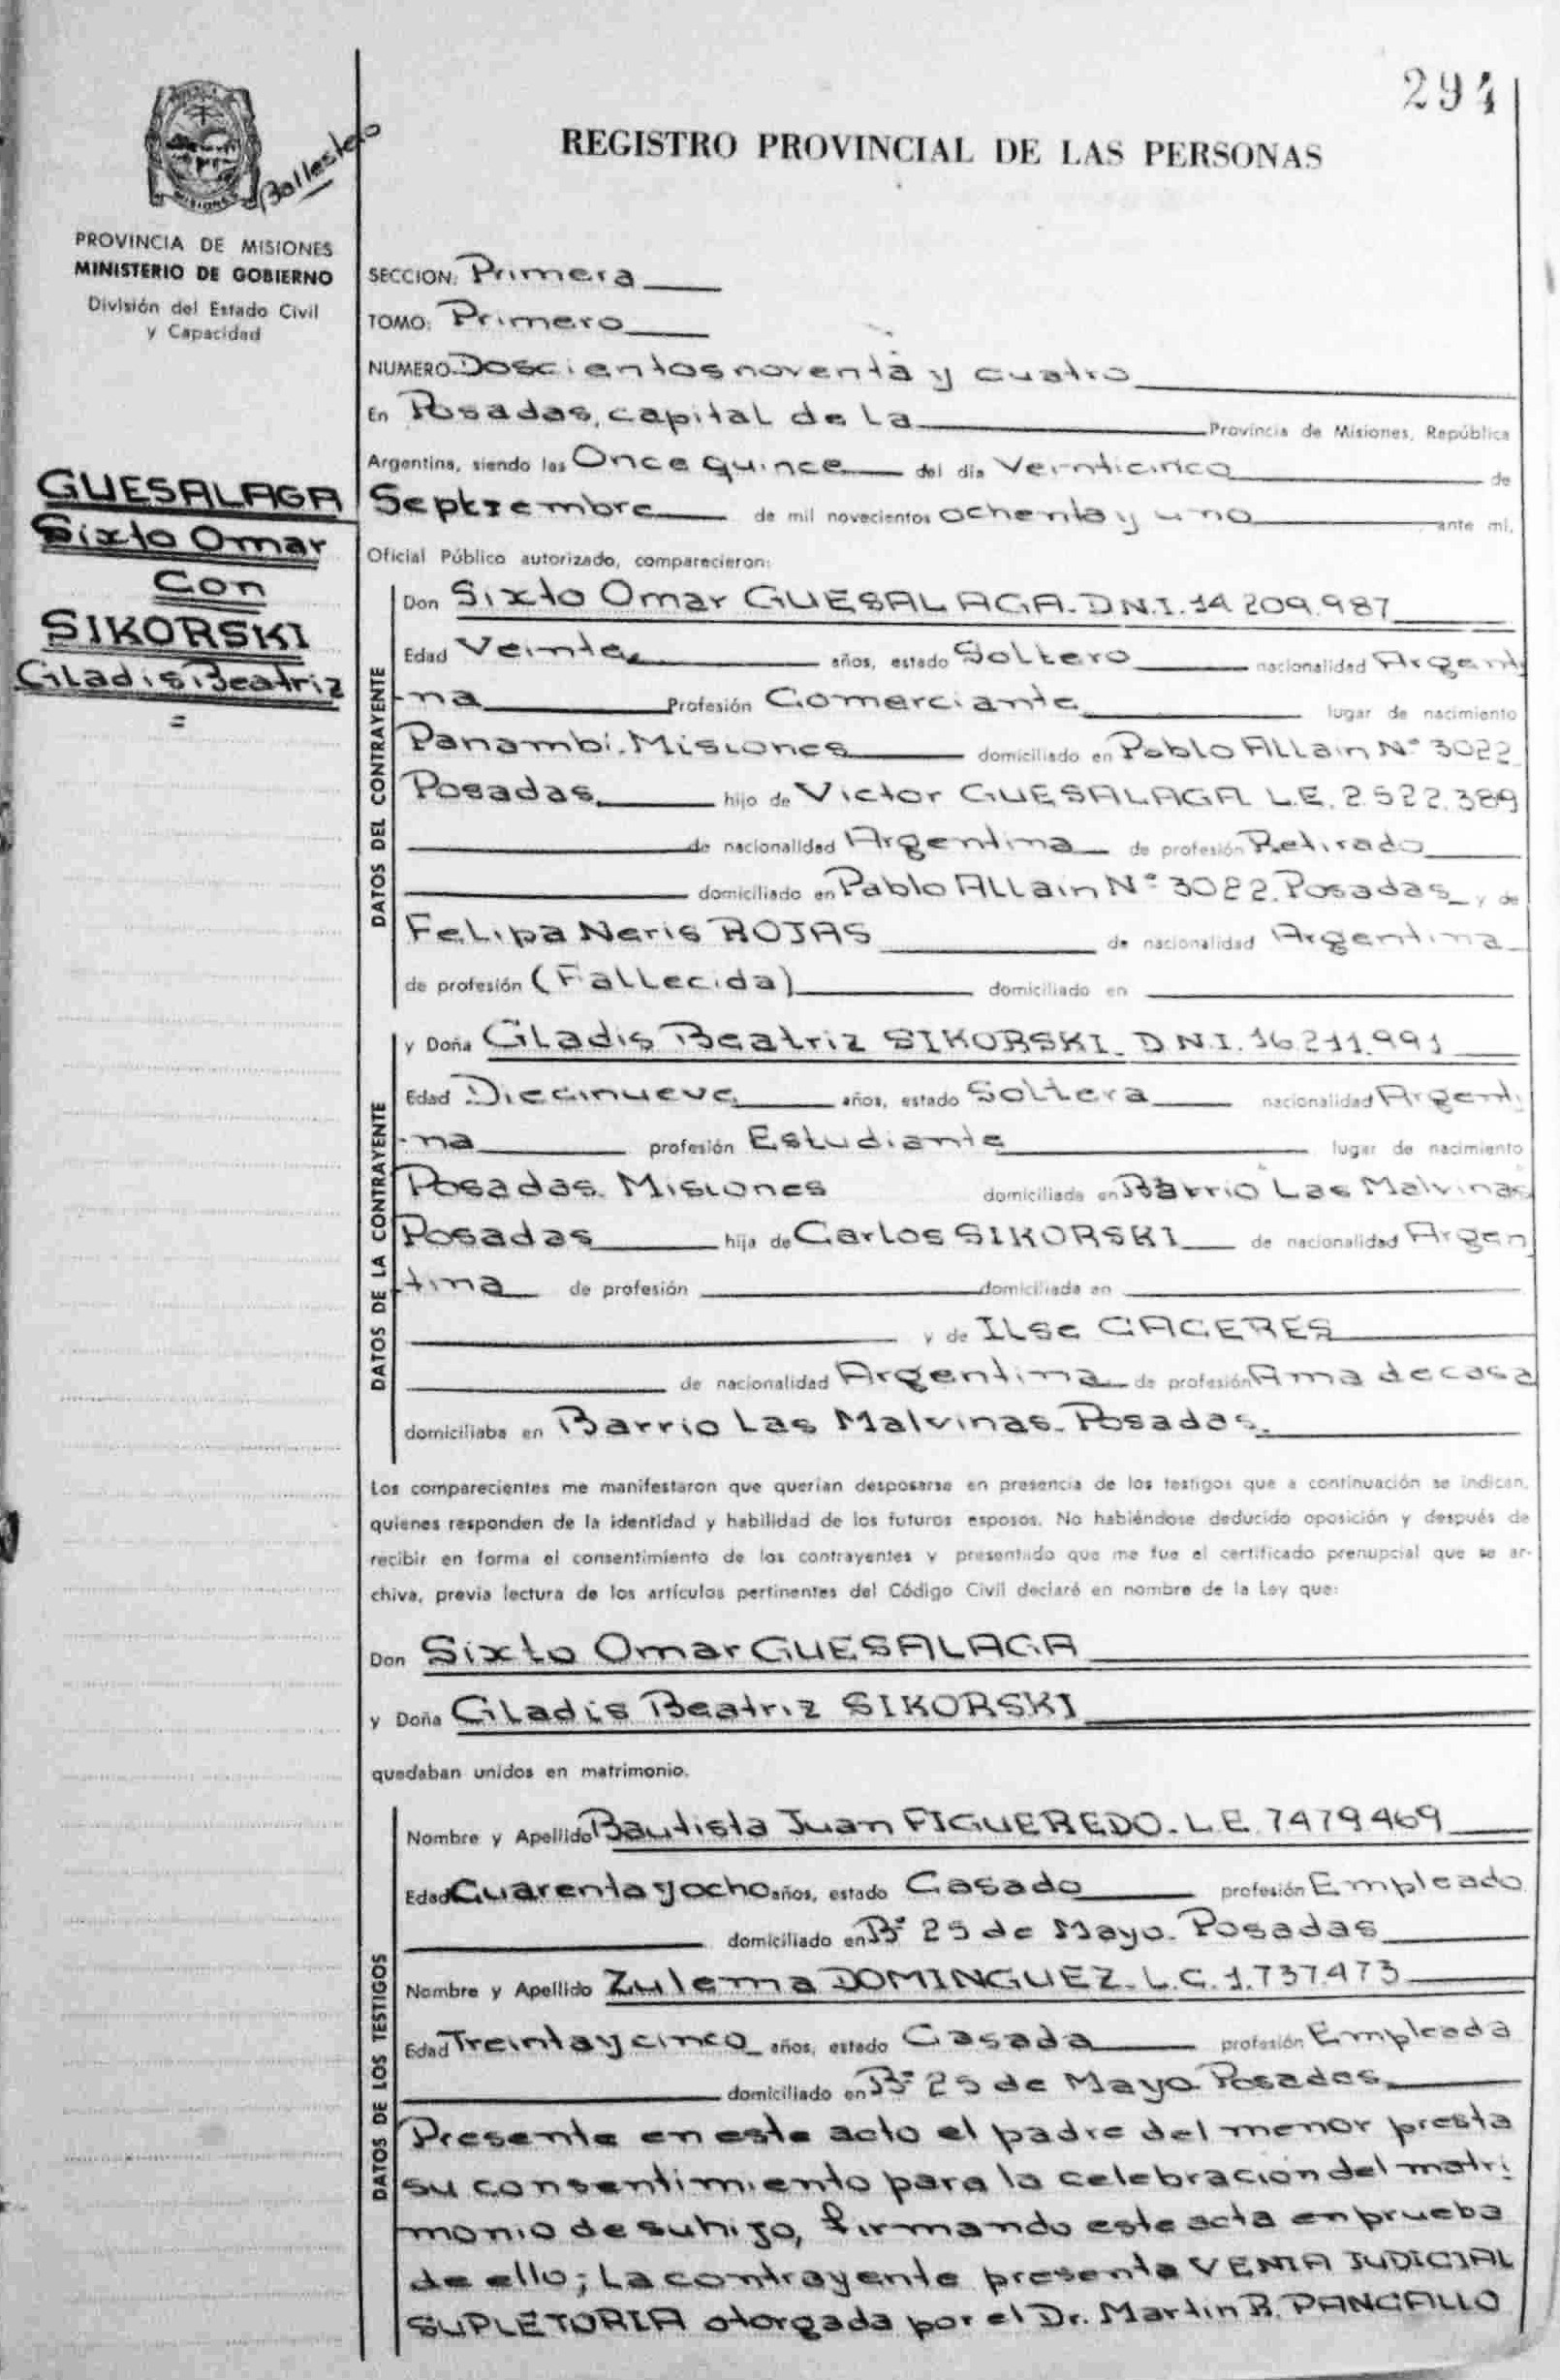 294
REGISTRO PROVINCIAL DE LAS PERSONAS
MISIONES
Ballestero
PROVINCIA DE MISIONES
MINISTERIO DE GOBIERNO
División del Estado Civil
y Capacidad
GUESALAGA
Sixto Omar
Con
SIKORSKI
Gladis Beatriz
=
SECCION: Primera
TOMO: Primero
NUMERO: Doscientos noventa y cuatro
En Posadas, capital de La Provincia de Misiones, República
Argentina, siendo las Once quince del día Veinticinco de
Septiembre de mil novecientos ochenta y uno ante mí,
Oficial Público autorizado, comparecieron:
DATOS DEL CONTRAYENTE
Don Sixto Omar GUESALAGA. D.N.I. 14.209.987
Edad Veinte años, estado Soltero nacionalidad Argenti
-na Profesión Comerciante lugar de nacimiento
Panambi. Misiones domiciliado en Pablo Allain N° 3022
Posadas hijo de Victor GUESALAGA L.E. 2.522.389
de nacionalidad Argentina de profesión Retirado
domiciliado en Pablo Allain N° 3022. Posadas y de
Felipa Neris ROJAS de nacionalidad Argentina
de profesión (Fallecida) domiciliado en
DATOS DE LA CONTRAYENTE
y Doña Gladis Beatriz SIKORSKI. D.N.I. 16.211.991
Edad Diecinueve años, estado Soltera nacionalidad Argenti
-na profesión Estudiante lugar de nacimiento
Posadas. Misiones domiciliada en Barrio Las Malvinas
Posadas hija de Carlos SIKORSKI de nacionalidad Argen
tina de profesión domiciliada en
y de Ilse CACERES
de nacionalidad Argentina de profesión Ama de casa
domiciliaba en Barrio Las Malvinas. Posadas.
Los comparecientes me manifestaron que querían desposarse en presencia de los testigos que a continuación se indican,
quienes responden de la identidad y habilidad de los futuros esposos. No habiéndose deducido oposición y después de
recibir en forma el consentimiento de los contrayentes y presentado que me fue el certificado prenupcial que se ar-
chiva, previa lectura de los artículos pertinentes del Código Civil declaré en nombre de la Ley que:
Don Sixto Omar GUESALAGA
y Doña Gladis Beatriz SIKORSKI
quedaban unidos en matrimonio.
DATOS DE LOS TESTIGOS
Nombre y Apellido Bautista Juan FIGUEREDO. L.E. 7479469
Edad Cuarenta y ocho años, estado Casado profesión Empleado
domiciliado en B° 25 de Mayo. Posadas
Nombre y Apellido Zulema DOMINGUEZ. L.C. 1.737.473
Edad Treinta y cinco años, estado Casada profesión Empleada
domiciliado en B° 25 de Mayo Posadas
Presente en este acto el padre del menor presta
su consentimiento para la celebración del matri
monio de su hijo, firmando este acta en prueba
de ello; La contrayente presenta VENIA JUDICIAL
SUPLETORIA otorgada por el Dr. Martin R. PANCALLO